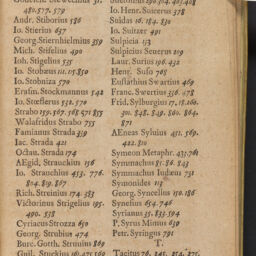 480.577.579
Andr. Stiborius 586
Io. Stierius 657
Georg. Stiernhielmius 359
Mich. Stifelius 490
Ioh. Stigelius 535
Io. Stobæus 111.215.850
Io. Stobniza 570
Erasm. Stockmannus 542
Io. Stœflerus 532. 570
Strabo 259.567.568 571 855
Walafridus Strabo 755
Famianus Strada 339
Iac. Strada 421
Octau. Strada 174
AEgid, Strauchius 156
Io. Strauchius 453. 776.
804.819.867
Rich. Streinius 174. 383
Victorinus Strigelius 195.
490. 538
Cyriacus Strozza 650
Georg. Strubius 474
Burc. Gotth. Struuius 869
Guil. Stuckius
Io. Henr. Suicerus 378
Suidas 16. 184. 830
Io. Suizart 491
Sulpicia 113
Sulpicius Seuerus 219
Laur. Surius 196. 432
Henr. Suso 708
Eustathius Swartius 469
Franc. Swertius 356. 478
Frid. Sylburgius 17. 18. 260.
301. 848. 849. 860. 864.
871
AEneas Syluius 431. 569.
822. 820
Symeon Metaphr. 435.761
Symmachus 85. 86. 843
Symmachus Iudæus 731
Symonides 113
Georg. Syncellus 150. 186
Synesius 654. 746
Syrianus 35. 833. 594
P. Syrus Mimus 639
Petr. Syringus 791
T.
Tacitus 76. 245. 254. 275.